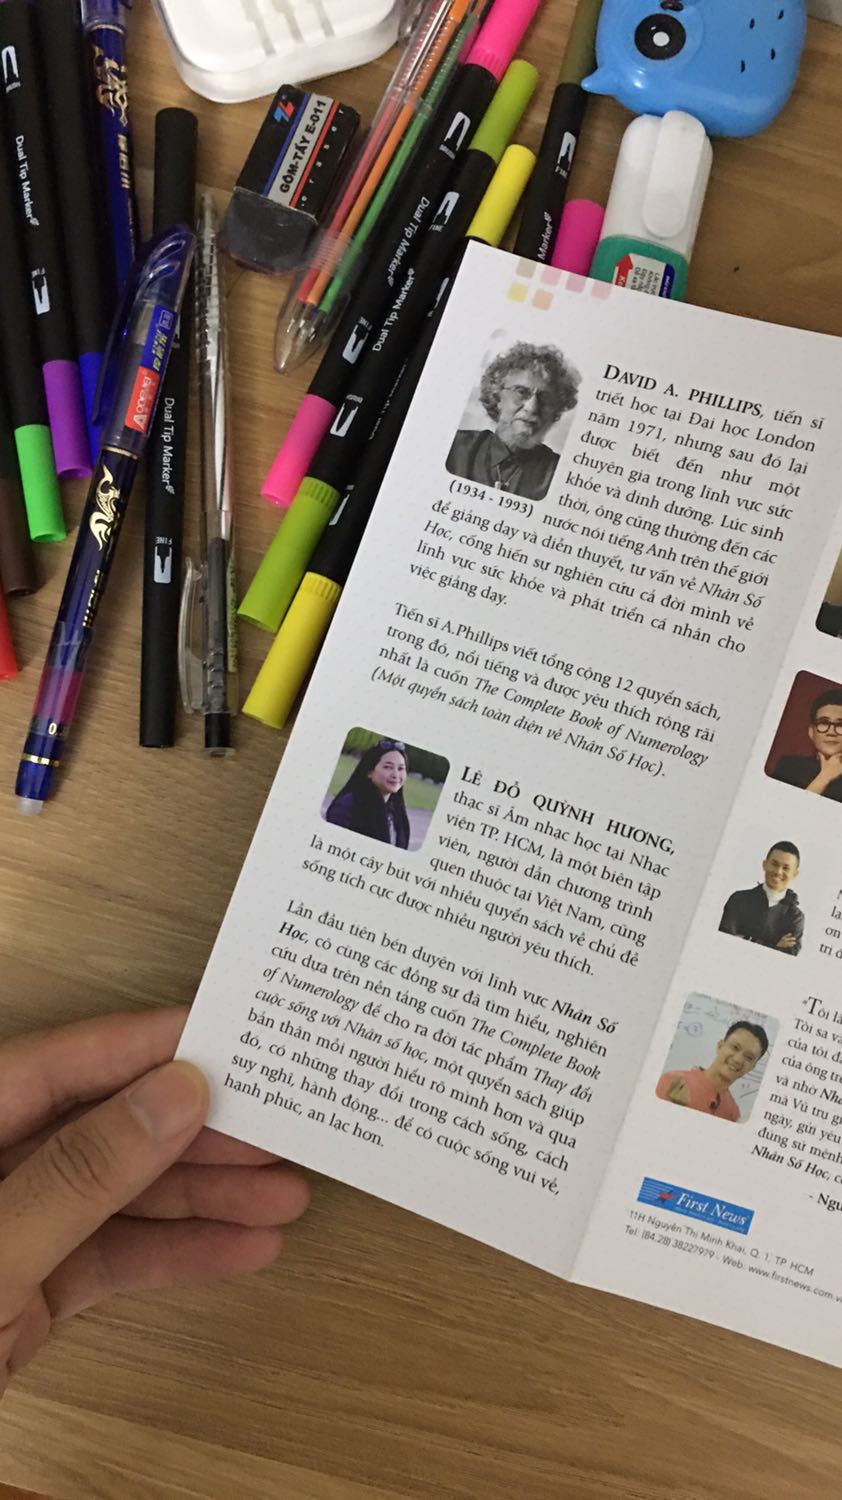 Dual Tip Marker
FINE
Dual Tip Marker
FINE
GÔM-TẨY E-011
eraser
Dual Tip Marker
FINE
Dual Tip Marker
Marker
FINE
DAVID A. PHILLIPS, tiến sĩ
triết học tại Đại học London
năm 1971, nhưng sau đó lại
được biết đến như một
chuyên gia trong lĩnh vực sức
khỏe và dinh dưỡng. Lúc sinh
thời, ông cũng thường đến các
(1934 - 1993)
nước nói tiếng Anh trên thế giới
để giảng dạy và diễn thuyết, tư vấn về Nhân Số
Học, cống hiến sự nghiên cứu cả đời mình về
lĩnh vực sức khỏe và phát triển cá nhân cho
việc giảng dạy.
Tiến sĩ A.Phillips viết tổng cộng 12 quyển sách,
trong đó, nổi tiếng và được yêu thích rộng rãi
nhất là cuốn The Complete Book of Numerology
(Một quyển sách toàn diện về Nhân Số Học).
LÊ ĐỖ QUỲNH HƯƠNG,
thạc sĩ Âm nhạc học tại Nhạc
viện TP. HCM, là một biên tập
viên, người dẫn chương trình
quen thuộc tại Việt Nam, cũng
là một cây bút với nhiều quyển sách về chủ đề
sống tích cực được nhiều người yêu thích.
Lần đầu tiên bén duyên với lĩnh vực Nhân Số
Học, cô cùng các đồng sự đã tìm hiểu, nghiên
cứu dựa trên nền tảng cuốn The Complete Book
of Numerology để cho ra đời tác phẩm Thay đổi
cuộc sống với Nhân số học, một quyển sách giúp
bản thân mỗi người hiểu rõ mình hơn và qua
đó, có những thay đổi trong cách sống, cách
suy nghĩ, hành động... để có cuộc sống vui vẻ,
hạnh phúc, an lạc hơn.
"Tôi là
Tôi sa
của tôi
của ông
và nhờ
mà Vũ trụ
ngày, gửi yêu
đúng sứ mệnh
Nhân Số Học,
First News
11H Nguyễn Thị Minh Khai, Q. 1, TP. HCM
Tel: (84.28) 38227979 - Web: www.firstnews.com.v